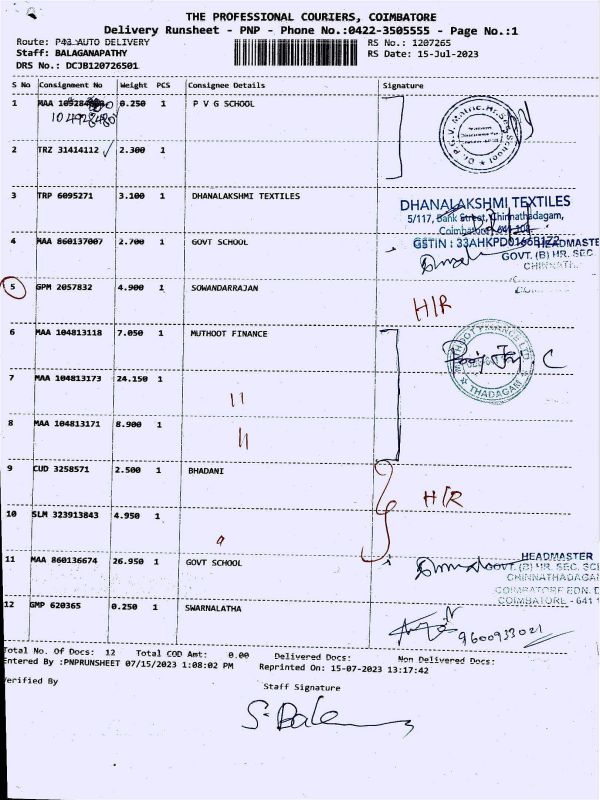 THE PROFESSIONAL COURIERS, COIMBATORE
Delivery Runsheet - PNP - Phone No.:0422-3505555 - Page No.:1
Route: P43 AUTO DELIVERY
RS No.: 1207265
Staff: BALAGANAPATHY
RS Date: 15-Jul-2023
DRS No.: DCJB120726501
S No Consignment No Weight PCS Consignee Details Signature
1 MAA 0.250 1 P V G SCHOOL
2 TRZ 31414112 2.300 1
3 TRP 6095271 3.100 1 DHANALAKSHMI TEXTILES
DHANALAKSHMI TEXTILES
5/117, Bank Street, Chinnathadagam,
4 MAA 860137007 2.700 1 GOVT SCHOOL
HEADMASTE
GOVT. (B) HR. SEC.
5 GPM 2057832 4.900 1 SOWANDARRAJAN H/R
6 MAA 104813118 7.050 1 MUTHOOT FINANCE
THADAGAM
7 MAA 104813173 24.150 1 "
8 MAA 104813171 8.900 1 "
9 CUD 3258571 2.500 1 BHADANI H/R
10 SLM 323913843 4.950 1 "
11 MAA 860136674 26.950 1 GOVT SCHOOL
HEADMASTER
GOVT. (B) HR. SEC. SC
CHINNATHADAGA
COIMBATORE EDN. D
COIMBATORE - 641 1
12 GMP 620365 0.250 1 SWARNALATHA
9600933021
Total No. Of Docs: 12 Total COD Amt: 0.00 Delivered Docs: Non Delivered Docs:
Entered By :PNPRUNSHEET 07/15/2023 1:08:02 PM Reprinted On: 15-07-2023 13:17:42
Verified By
Staff Signature